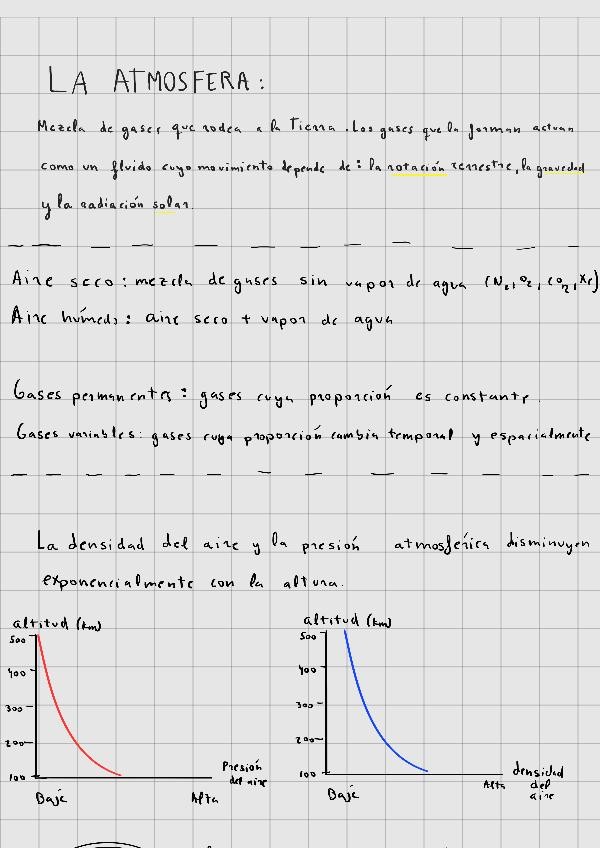 LA ATMOSFERA:
Mezcla de gases que rodea a la Tierra. Los gases que la forman actuan
como un fluido cuyo movimiento depende de: la rotación terrestre, la gravedad
y la radiación solar.
Aire seco: mezcla de gases sin vapor de agua (N₂, O₂, CO₂, Xe)
Aire húmedo: aire seco + vapor de agua
Gases permanentes: gases cuya proporción es constante.
Gases variables: gases cuya proporción cambia temporal y espacialmente
La densidad del aire y la presión atmosférica disminuyen
exponencialmente con la altura.
altitud (km)
500
400
300
200
100
Presión
del aire
Baje
Alta
altitud (km)
500
400
300
200
100
densidad
del
aire
Baje
Alta